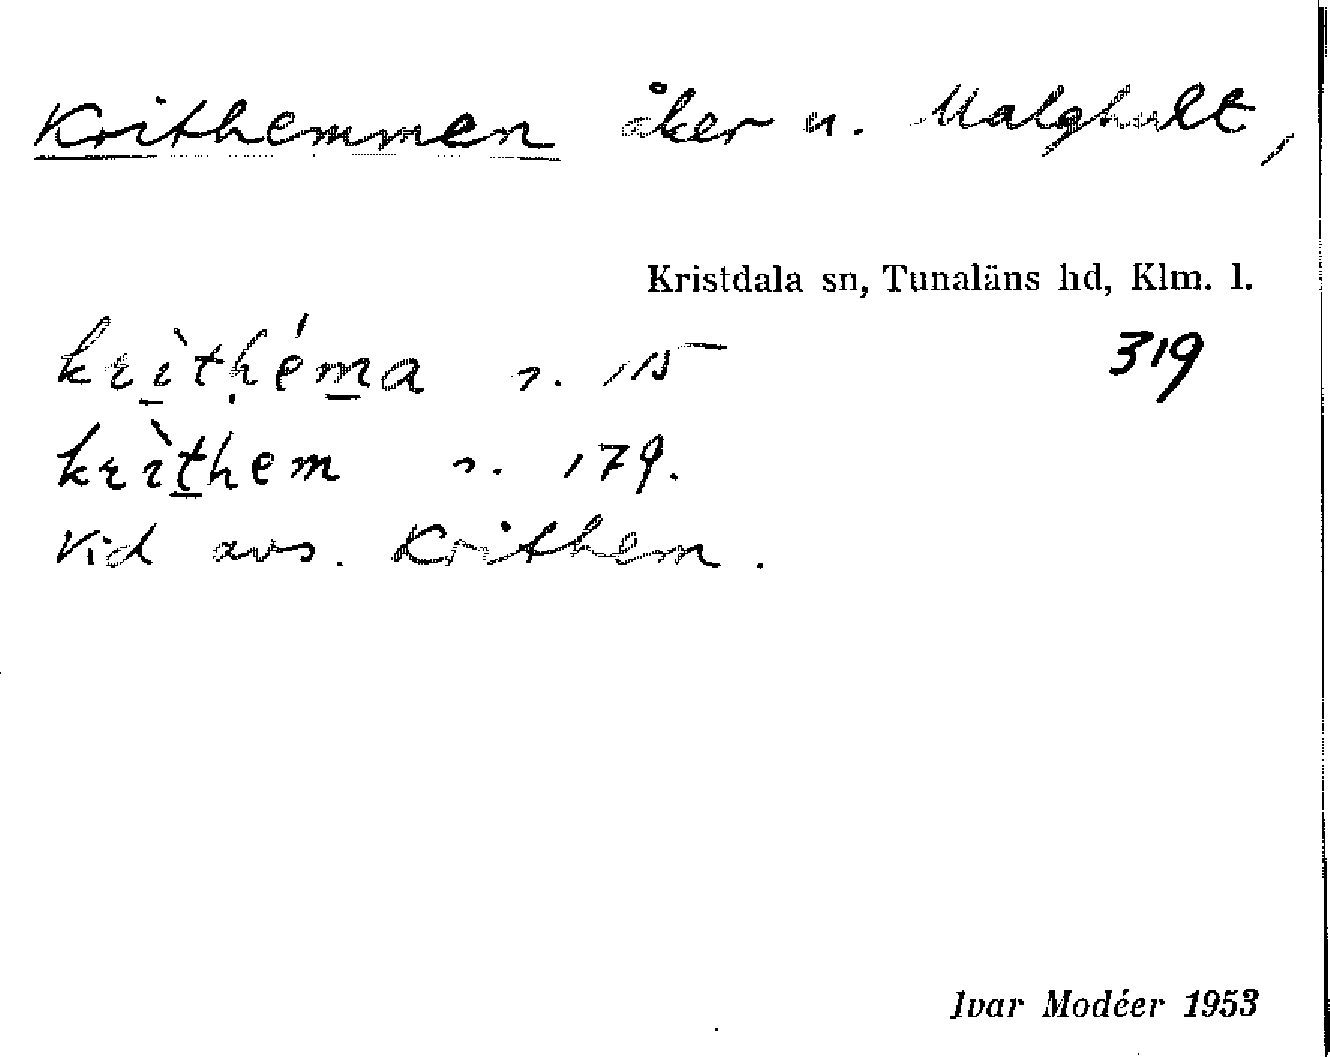 Krithemmen åker u. Malghult,
Kristdala sn, Tunaläns hd, Klm. l.
319
krìthéma s. 115
krìthem s. 179.
Vid avs. Krithem.
Ivar Modéer 1953